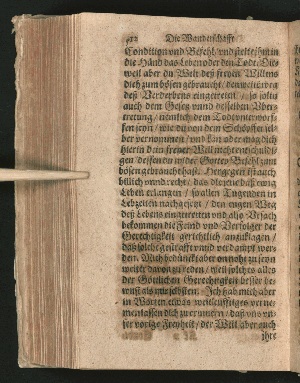 412 Die Wanderschafft
Condition vnd Befehl/ vnd stelt ihm in
die Händ das Leben oder den Todt. Die
weil aber du Welt deß freyen Willens
dich zum bösen gebraucht / den weiten weg
deß Verderbens eingetretten / so
auch dem Gesetz vnnd desselben Uber-
tretung / nemlich dem Todt vnterworf-
fen seyn / wie du von dem Schöpffer sel-
ber vernommen / vnd kan aber mag dich
hierin dein freyer Will nicht entschuldi-
gen / dessen du wider Gottes Befehl zum
bösen gebraucht hast. Hergegen ist auch
billich vnnd recht / das diejenige das ewig
Leben erlangen / so allen Tugenden in
Lebzeiten nachgesetzt / den engen Weg
deß Lebens eingetretten vnd also
bekommen die Feind vnd Verfolger der
Gerechtigkeit gerichtlich anzuklagen /
daß solche gestrafft vnnd verdampt wer-
den. Mich bedünckt aber onnoht zu seyn
weiter davon zu reden / weil solches alles
der Göttlichen Gerechtigkeit besser be-
wust als mir selbsten. Ich hab mich aber
in Worten etwas weitleufftiges verne-
men lassen dich zu erinnern / daß uns vn-
ser vorige Freyheit / der Will aber auch
ihre